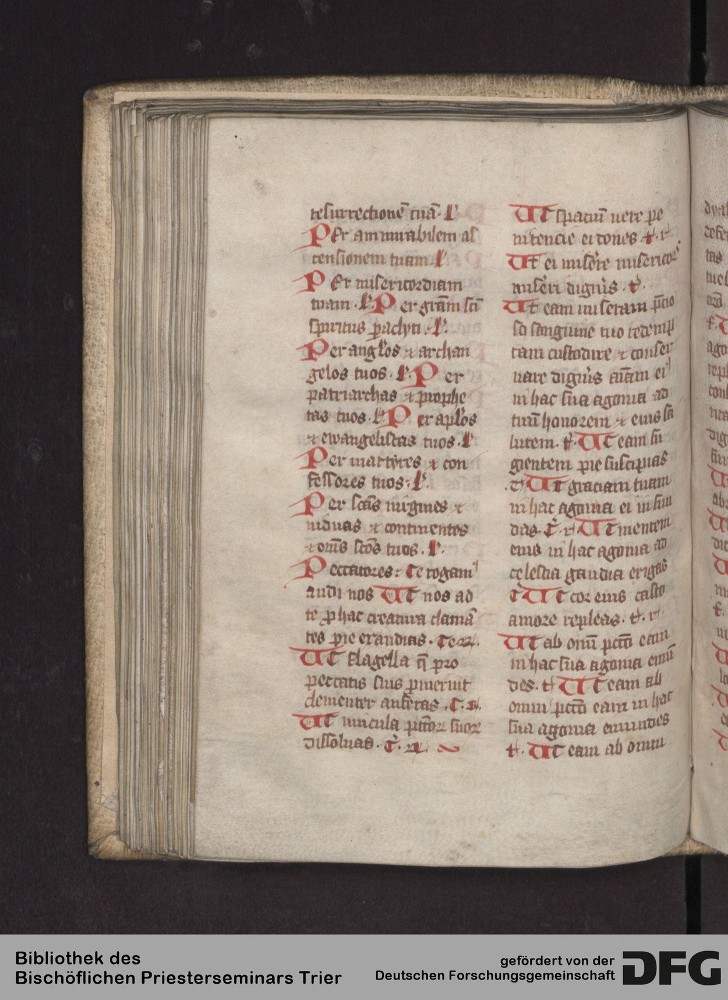 resurrectionē tuā. ł
Per ammirabilem as
censionem tuam. ł
Per misericordiam
tuam. ł. Per grām scī
spiritus paclyti. ł.
Per anglos & archan
gelos tuos. ł. Per
patriarchas & prophe
tas tuos. ł. Per aplos
& ewangelistas tuos. ł
Per martyres & con
fessores tuos. ł.
Per scās virgines &
viduas & continentes
& om̄s scōs tuos. ł.
Peccatores: te rogam
audi nos Ut nos ad
te p hac creatura clamā
tes pie exaudias. Te
Ut flagella q̄ pro
peccatis suis pmeruit
clementer auferas. T. R.
Ut vincula pctōr suor
dissoluas. T. R.
Ut spaciū uere pe
nitencie ei dones t. r
Ut ei misere misericor
miseri digneris. t.
Ut eam miseram
sō sanguine tuo redemp
tam custodire & conser
uare digneris aīam ei
in hac sua agonia ad
tuū honorem & eius sa
lutem. t. Ut eam fu
gientem pie suscipias
t. Ut graciam tuam
in hac agonia ei infun
das. t. r Ut mentem
eius in hac agonia ad
celestia gaudia erigas
t Ut cor eius casto
amore repleas. t. r.
Ut ab omi pctō eam
in hac sua agonia emū
des. t Ut eam ab
omni pctō eam in hac
sua agonia emundes
t. Ut eam ab omni
Bibliothek des
Bischöflichen Priesterseminars Trier
gefördert von der
Deutschen Forschungsgemeinschaft
DFG